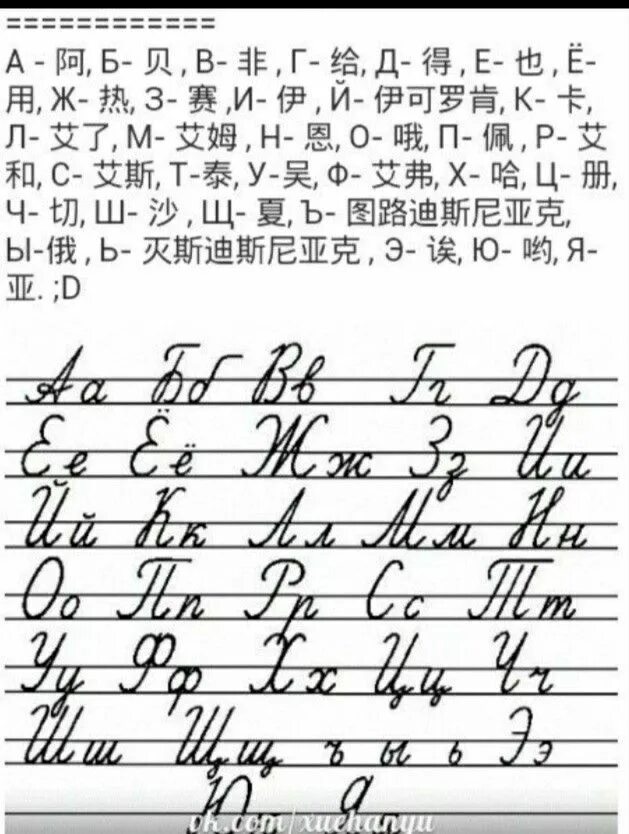 ============
А - 阿, Б- 贝 , В- 非 , Г- 给, Д- 得 , Е- 也 , Ё-
用, Ж- 热, З- 赛 ,И- 伊 , Й- 伊可罗肯, К- 卡,
Л- 艾了, М- 艾姆 , Н- 恩, О- 哦, П- 佩 , Р- 艾
和, С- 艾斯, Т-泰, У-吴, Ф- 艾弗, Х- 哈, Ц- 册,
Ч- 切, Ш- 沙 , Щ- 夏, Ъ- 图路迪斯尼亚克,
Ы-俄 , Ь- 灭斯迪斯尼亚克 , Э- 诶, Ю- 哟, Я-
亚. ;D
Аа Бб Вв Гг Дд
Ее Ёё Жж Зз Ии
Йй Кк Лл Мм Нн
Оо Пп Рр Сс Тт
Уу Фф Хх Цц Чч
Шш Щщ ъ ы ь Ээ
Ю Я
ok.com/xuehanyu